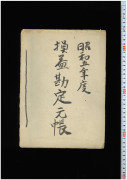 昭和五年度
損益勘定元帳